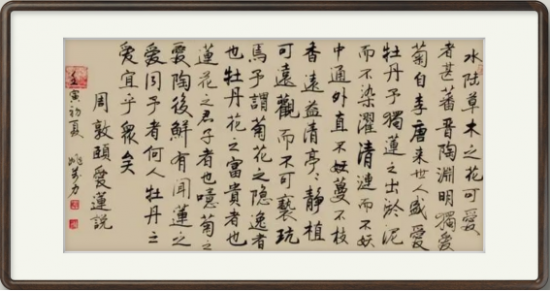 水陸草木之花可愛
者甚蕃晋陶渊明獨愛
菊自李唐来世人盛愛
牡丹予獨蓮之出淤泥
而不染濯清漣而不妖
中通外直不妖蔓不枝
香遠益清亭々静植
可遠觀而不可褻玩
焉予謂菊花之隐逸者
也牡丹花之富貴者也
蓮花之君子者也噫菊之
愛陶後鮮有闻蓮之
愛同予者何人牡丹之
愛宜乎衆矣
周敦頤愛蓮説
壬寅初夏